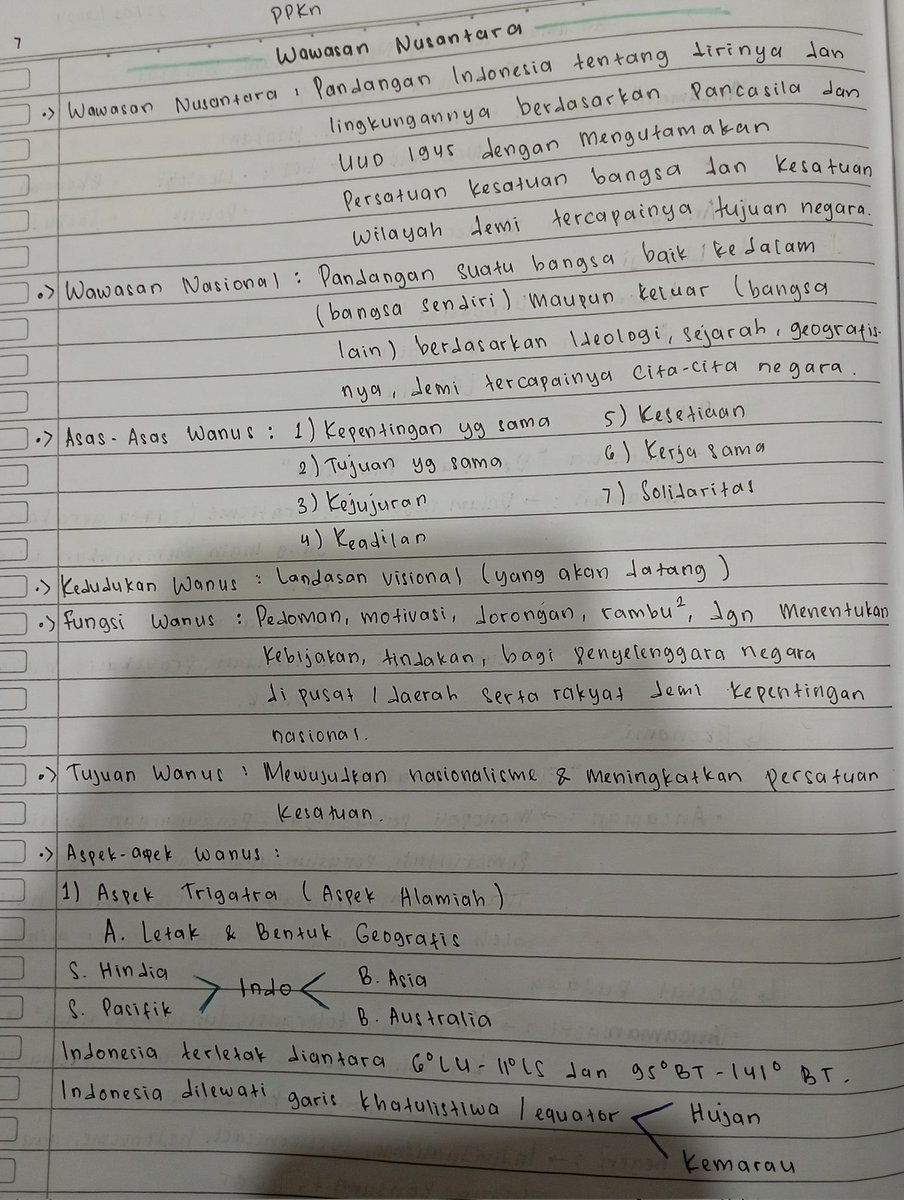 PPKn
7
Wawasan Nusantara
•> Wawasan Nusantara : Pandangan Indonesia tentang dirinya dan
lingkungannya berdasarkan Pancasila dan
UUD 1945 dengan mengutamakan
Persatuan kesatuan bangsa dan kesatuan
wilayah demi tercapainya tujuan negara.
•> Wawasan Nasional : Pandangan suatu bangsa baik kedalam
(bangsa sendiri) maupun keluar (bangsa
lain) berdasarkan Ideologi, sejarah, geografis-
nya, demi tercapainya cita-cita negara.
•> Asas-Asas Wanus : 1) Kepentingan yg sama 5) Kesetiaan
2) Tujuan yg sama 6) Kerja sama
3) Kejujuran 7) Solidaritas
4) Keadilan
•> Kedudukan Wanus : Landasan visional (yang akan datang)
•> Fungsi Wanus : Pedoman, motivasi, dorongan, rambu², dgn menentukan
kebijakan, tindakan, bagi penyelenggara negara
di pusat / daerah serta rakyat demi kepentingan
nasional.
•> Tujuan Wanus : Mewujudkan nasionalisme & meningkatkan persatuan
kesatuan.
•> Aspek-aspek wanus :
1) Aspek Trigatra (Aspek Alamiah)
A. Letak & Bentuk Geografis
S. Hindia > Indo < B. Asia
S. Pasifik B. Australia
Indonesia terletak diantara 6°LU - 11°LS dan 95°BT - 141° BT.
Indonesia dilewati garis khatulistiwa / equator < Hujan
Kemarau